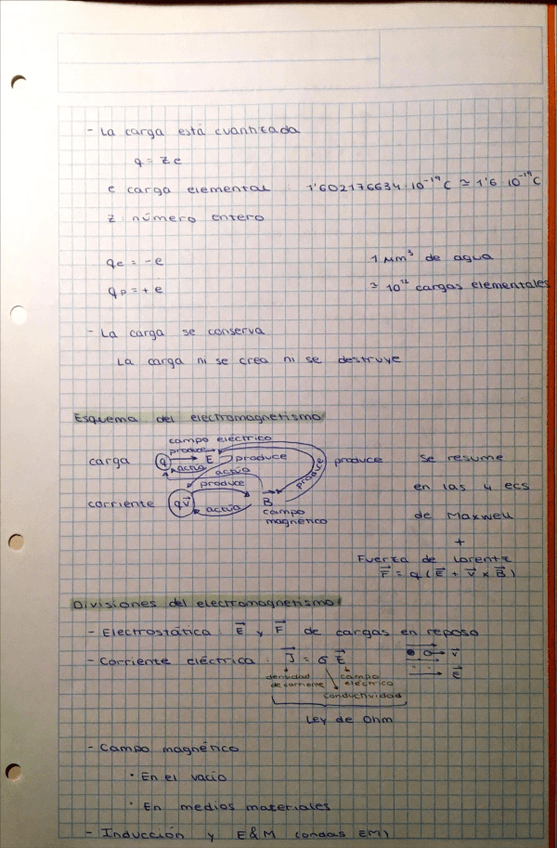 - La carga está cuantizada
q = Ze
e carga elemental 1'602176634·10⁻¹⁹C ≃ 1'6·10⁻¹⁹C
Z número entero
qe = -e 1 μm³ de agua
qp = +e ≃ 10¹² cargas elementales
- La carga se conserva
La carga ni se crea ni se destruye
Esquema del electromagnetismo
campo eléctrico
produce
carga q E produce produce se resume
actúa
actúa
produce
produce en las 4 ecs
corriente qv⃗ actúa B de Maxwell
campo
magnético
+
Fuerza de Lorentz
F⃗ = q(E⃗ + v⃗ × B⃗)
Divisiones del electromagnetismo
- Electrostática: E⃗ y F⃗ de cargas en reposo
- Corriente eléctrica: J⃗ = σ E⃗ v⃗
densidad de corriente campo eléctrico E⃗
conductividad
Ley de Ohm
- Campo magnético
· En el vacío
· En medios materiales
- Inducción y E&M (ondas EM)